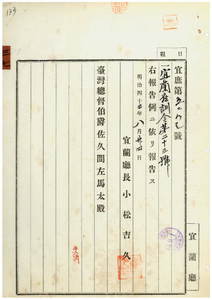 宜庶第
號
目報
一、宜蘭廳訓令第二十三號
右報告例ニ依リ報告ス
明治四十
年八月
日
宜蘭廳長 小松吉久
臺灣總督伯爵佐久間左馬太殿
宜蘭廳